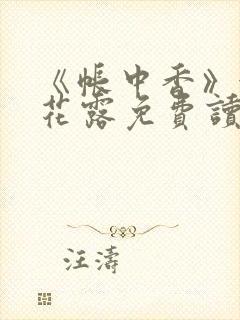 《帳中香》
花露免費讀
汪濤